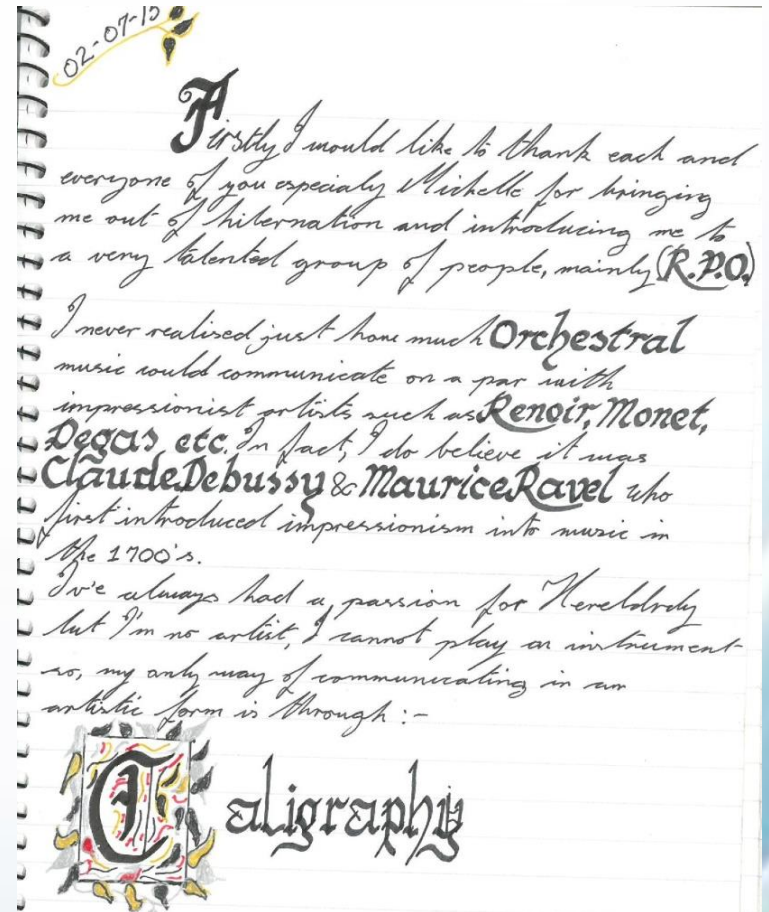 02-07-15
Firstly I would like to thank each and
everyone of you especialy Michelle for bringing
me out of hibernation and introducing me to
a very talented group of people, mainly (R.P.O.)
I never realised just how much Orchestral
music could communicate on a par with
impressionist artists such as Renoir, Monet,
Degas etc. In fact, I do believe it was
Claude Debussy & Maurice Ravel who
first introduced impressionism into music in
the 1700's.
Iv'e always had a passion for Hereldrdy
but I'm no artist, I cannot play an instrument
so, my only way of communicating in an
artistic form is through :-
Caligraphy